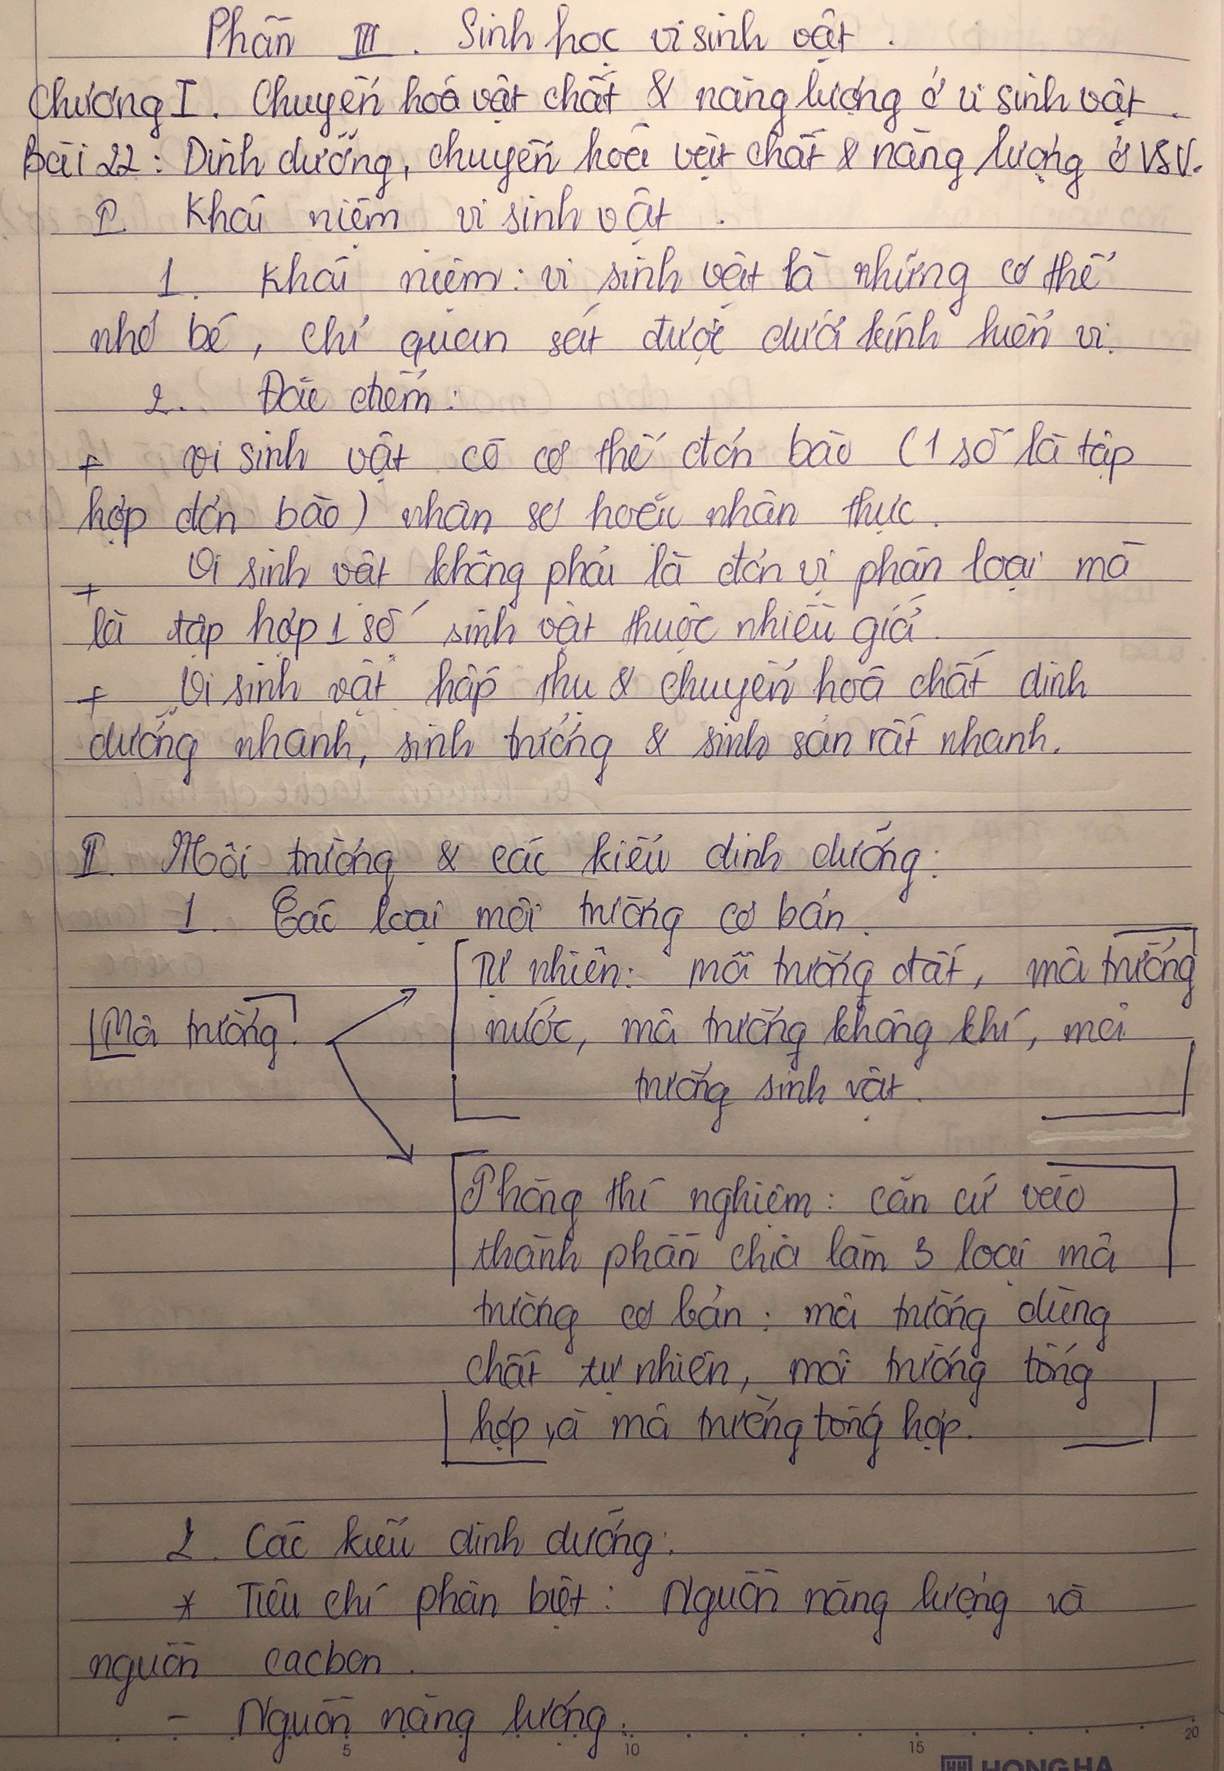 Phần III. Sinh học vi sinh vật.
Chương I. Chuyển hoá vật chất & năng lượng ở vi sinh vật.
Bài 22: Dinh dưỡng, chuyển hoá vật chất & năng lượng ở VSV.
I. Khái niệm vi sinh vật.
1. Khái niệm: vi sinh vật là những cơ thể
nhỏ bé, chỉ quan sát được dưới kính hiển vi.
2. Đặc điểm:
+ vi sinh vật có cơ thể đơn bào (1 số là tập
hợp đơn bào) nhân sơ hoặc nhân thực.
+ Vi sinh vật không phải là đơn vị phân loại mà
là tập hợp 1 số sinh vật thuộc nhiều giới.
+ Vi sinh vật hấp thu & chuyển hoá chất dinh
dưỡng nhanh, sinh trưởng & sinh sản rất nhanh.
II. Môi trường & các kiểu dinh dưỡng:
1. Các loại môi trường cơ bản.
Tự nhiên: môi trường đất, môi trường
Môi trường
nước, môi trường không khí, môi
trường sinh vật.
Phòng thí nghiệm: căn cứ vào
thành phần chia làm 3 loại môi
trường cơ bản: môi trường dùng
chất tự nhiên, môi trường tổng
hợp và môi trường tổng hợp.
2. Các kiểu dinh dưỡng:
* Tiêu chí phân biệt: Nguồn năng lượng và
nguồn cacbon.
- Nguồn năng lượng:
5 10 15 20
HONG HA